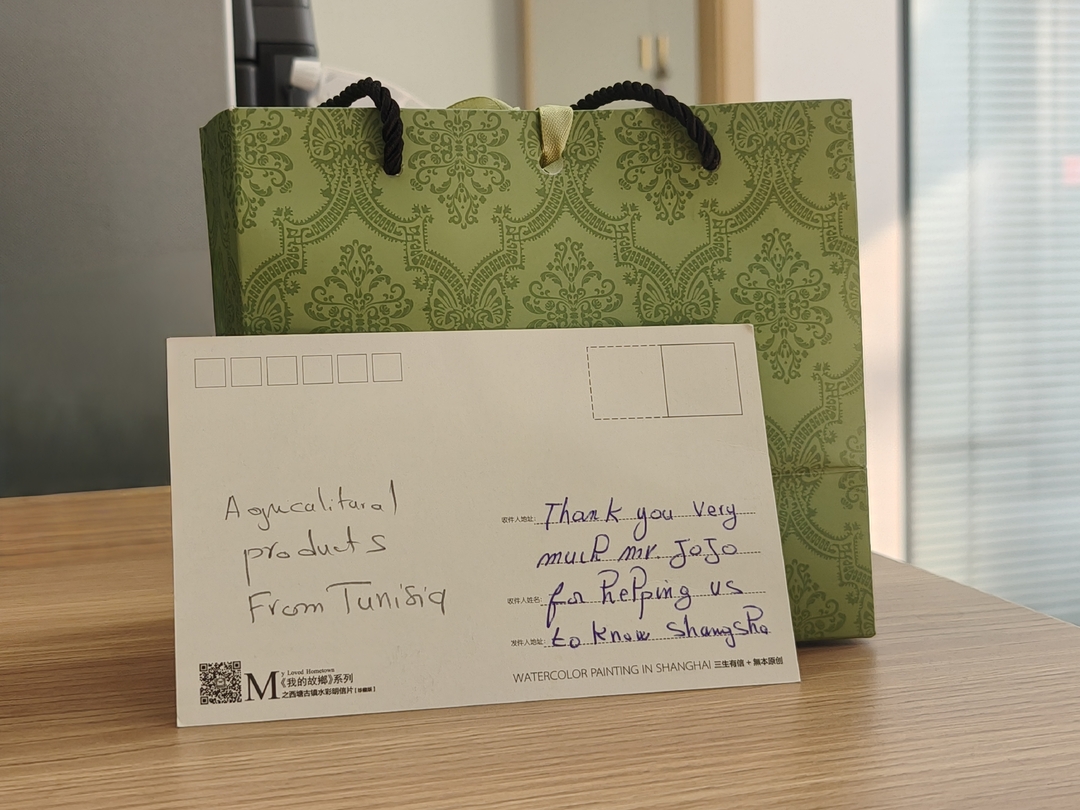 Agrucalitural
products
From Tunisia
收件人地址:
Thank you very
much mr. JoJo
收件人姓名:
for helping us
发件人地址:
to know Shangsha
My Loved Hometown
《我的故鄉》系列
之西塘古镇水彩明信片【珍藏版】
WATERCOLOR PAINTING IN SHANGHAI 三生有信 + 無本原创